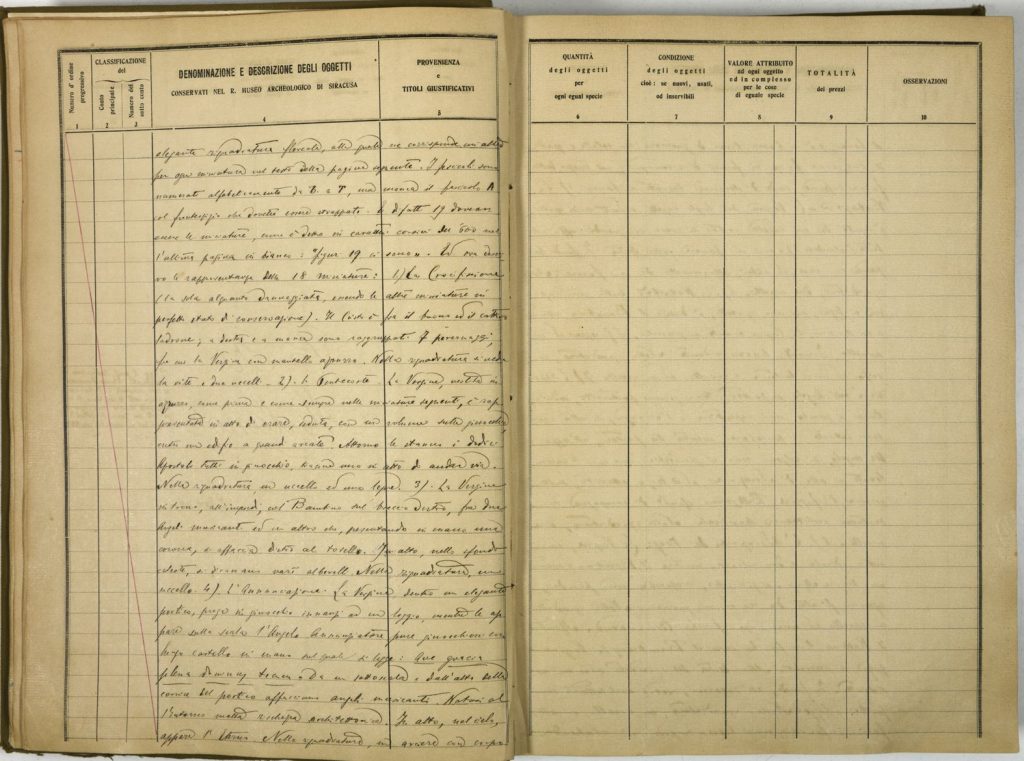 Numero d'ordine progressivo
CLASSIFICAZIONE
del
Conto principale
Numero del sotto conto
DENOMINAZIONE E DESCRIZIONE DEGLI OGGETTI
CONSERVATI NEL R. MUSEO ARCHEOLOGICO DI SIRACUSA
PROVENIENZA
e
TITOLI GIUSTIFICATIVI
1 2 3 4 5
elegante riquadratura floreale, alla quale ne corrisponde un'altra
per ogni miniatura nel testo della pagina seguente. I fascicoli sono
numerati alfabeticamente da B a T, ma manca il fascicolo A
col frontespizio che dovette essere strappato. E difatti 19 dovean
essere le miniature, come è detto in caratteri corsivi del 600 nel
l'ultima pagina in bianco: "figur 19 ci sono". Ed ora
le rappresentanze delle 18 miniature: 1) La Crocifissione
(la sola alquanto danneggiata, essendo le altre miniature in
perfetto stato di conservazione). Il Cristo è fra il buono ed il cattivo
ladrone; a destra e a manca sono raggruppati 7 personaggi,
fra cui la Vergine con mantello azzurro. Nella riquadratura si vede
la vite e due uccelli. 2) La Pentecoste. La Vergine, vestita in
azzurro, come prima e come sempre nelle miniature seguenti, è rap
presentata in atto di orare, seduta, con un volume sulle ginocchia
entro un edificio a grandi arcate. Attorno le stanno i dodici
Apostoli tutti in ginocchio, tranne uno in atto di andar via.
Nella riquadratura, un uccello ed una lepre. 3) La Vergine
in trono, all'impiedi, col Bambino sul braccio destro, fra due
Angeli musicanti ed un altro che, presentando in mano una
corona, si affaccia dietro al tosello. In alto, nello sfondo
celeste, si disegnano vari alberelli. Nella riquadratura, un
uccello. 4) L'Annunciazione. La Vergine, dentro un elegante
portico, prega in ginocchio innanzi ad un leggio, mentre le ap
pare sulla scala l'Angelo Annunziatore pure ginocchioni con
lungo cartello in mano sul quale si legge: Ave gracia
plena dominus tecum. Da un sottoscala e dall'alto della
cornice del portico affacciano angeli musicanti. Notasi al
l'intorno molta ricchezza architettonica. In alto, nel cielo,
appare l'Eterno. Nella riquadratura, un arciere con
QUANTITÀ
degli oggetti
per
ogni egual specie
CONDIZIONE
degli oggetti
cioè: se nuovi, usati,
od inservibili
VALORE ATTRIBUITO
ad ogni oggetto
ed in complesso
per le cose
di eguale specie
TOTALITÀ
dei prezzi
OSSERVAZIONI
6 7 8 9 10